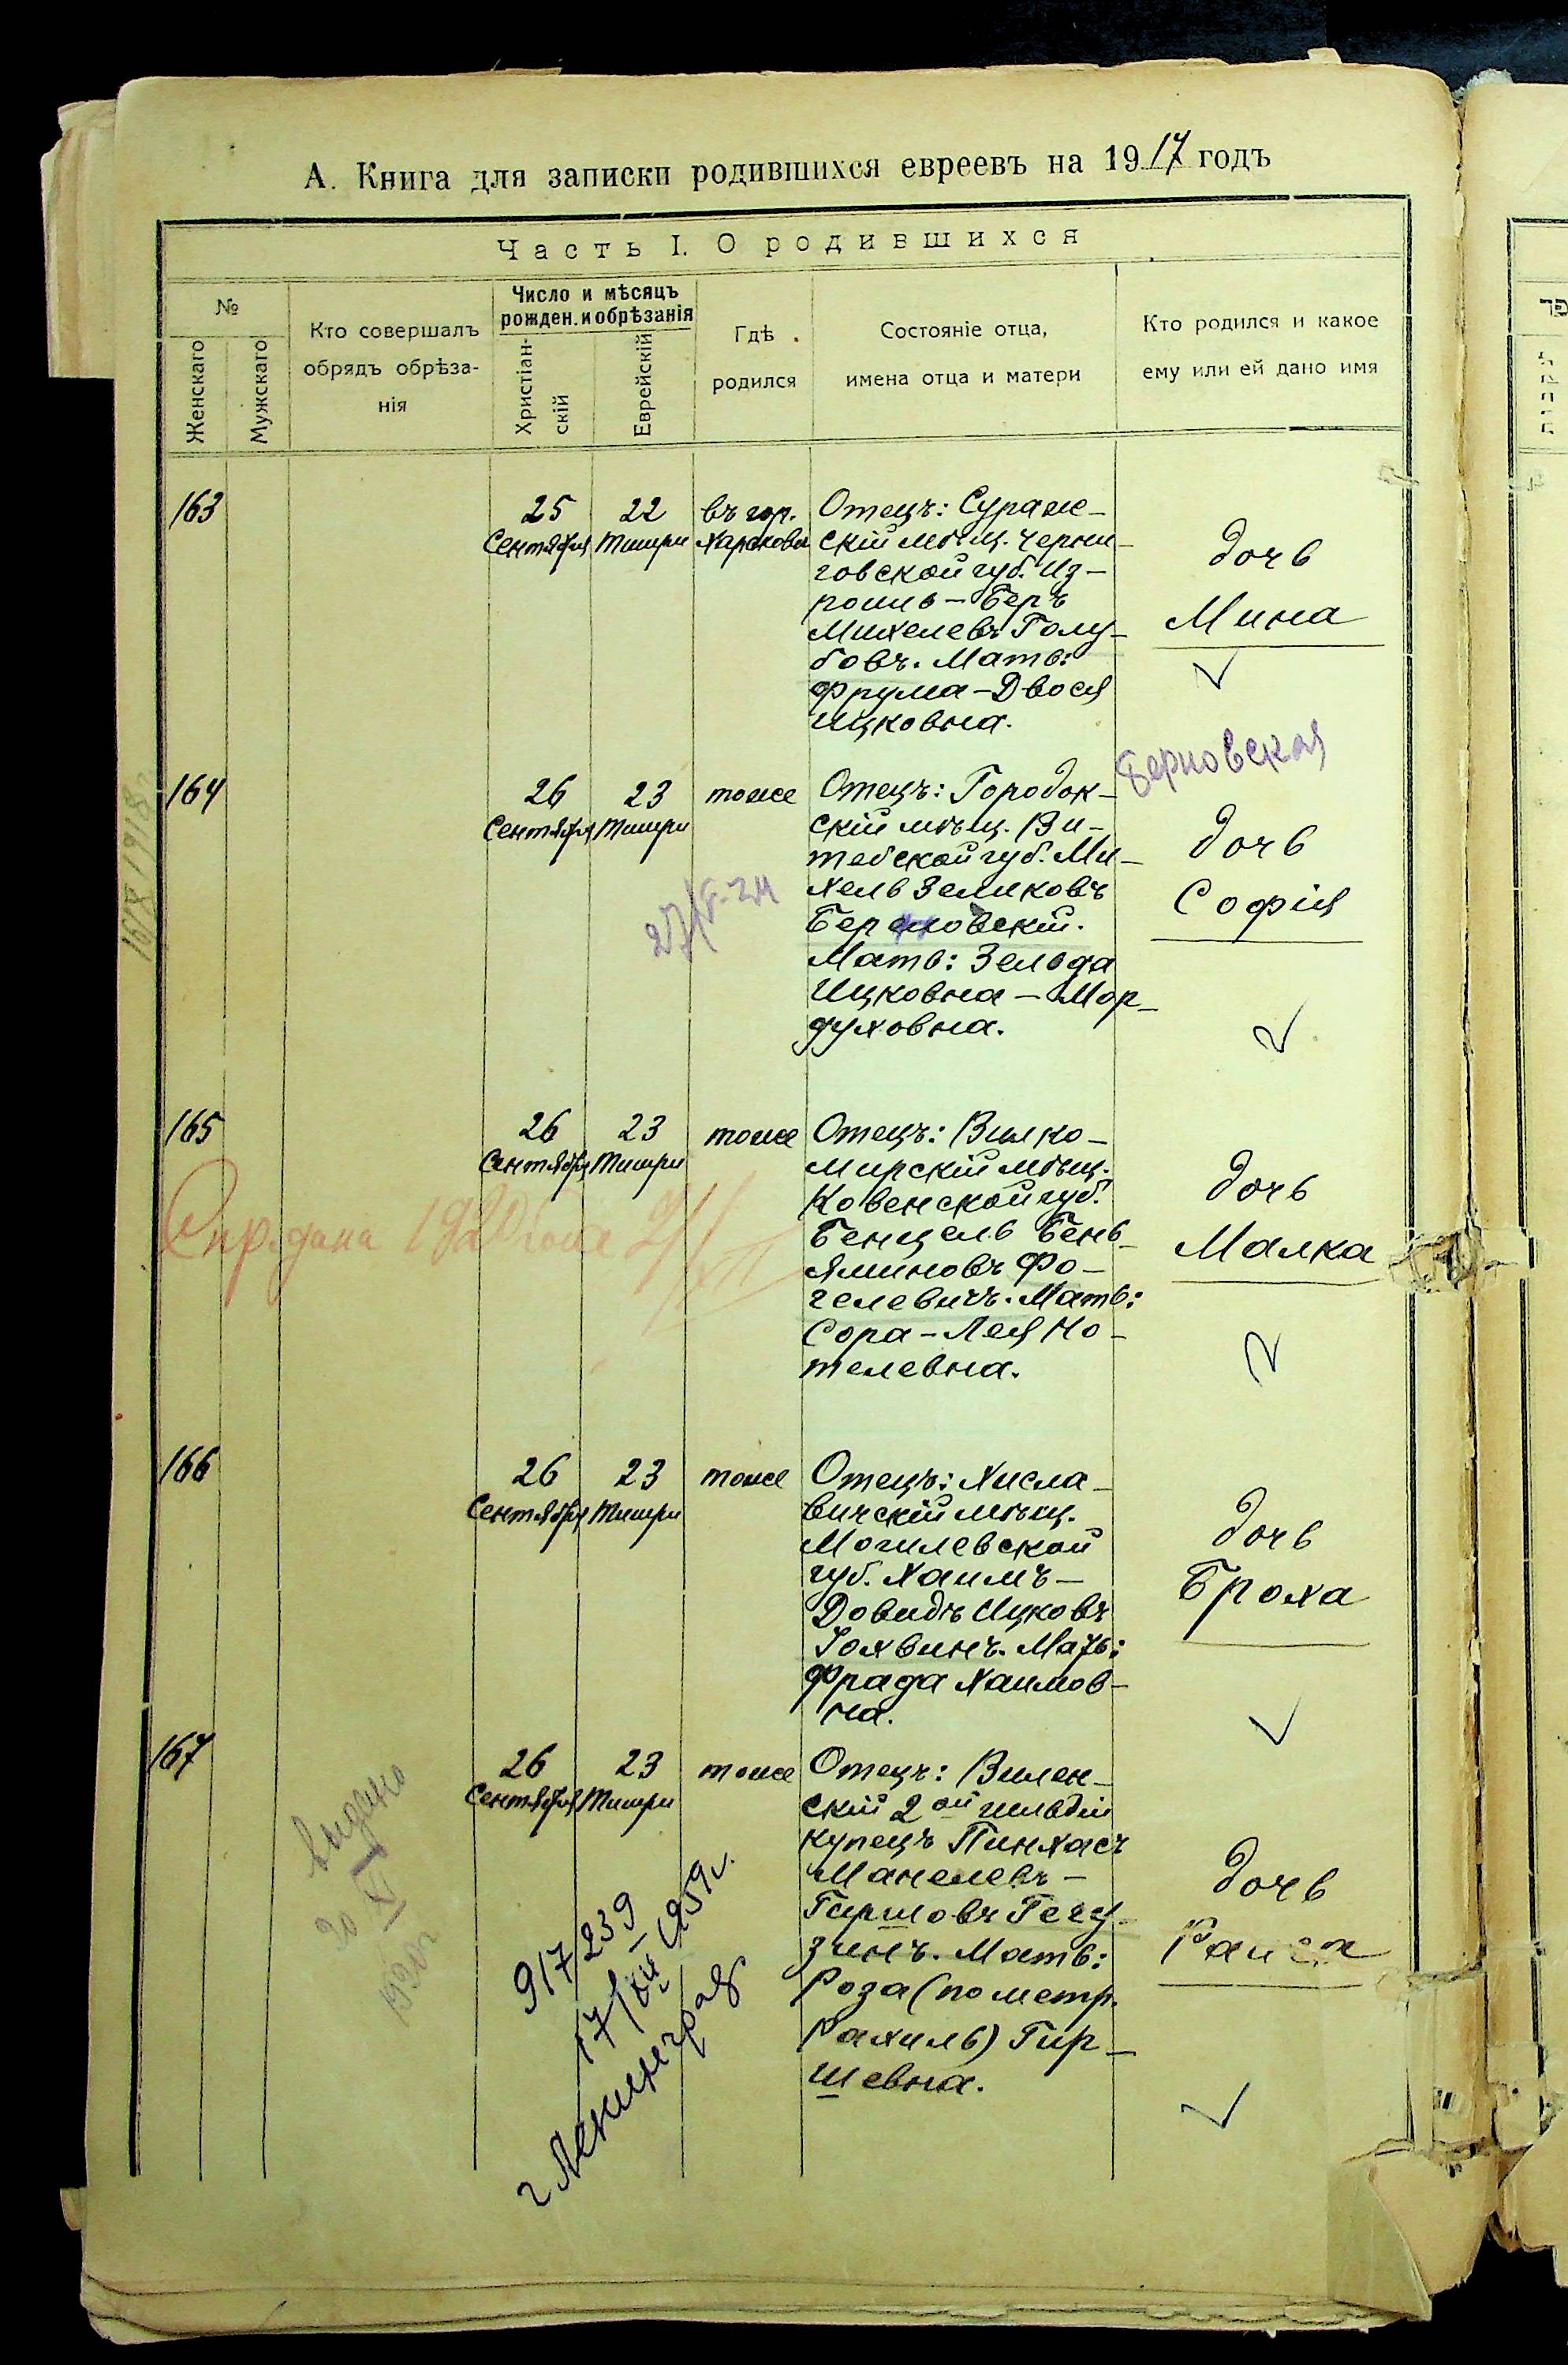 А. Книга для записки родившихся евреевъ на 1917 годъ
Часть I. О родившихся
№
Женскаго
Мужскаго
Кто совершалъ
обрядъ обрѣза-
нія
Число и мѣсяцъ
рожден. и обрѣзанія
Христіан-
скій
Еврейскій
Гдѣ
родился
Состояніе отца,
имена отца и матери
Кто родился и какое
ему или ей дано имя
163
25
Сентября
22
Тишри
въ гор.
Харькова
Отецъ: Сураж-
скій мѣщ. Черни-
говской губ. Из-
роиль-Беръ
Михелевъ Голу-
бовъ. Мать:
Фрума-Двося
Ицковна.
дочь
Мина
164
26
Сентября
23
Тишри
тоже
Отецъ: Городок-
скій мѣщ. Ви-
тебской губ. Ми-
хель Зеликовъ
Мать: Зельда
Ицковна-Мор-
духовна.
Берновская
дочь
Софія
16/X 1918
165
26
Сентября
23
Тишри
тоже
Отецъ: Вилко-
мирскій мѣщ.
Ковенской губ.
Бенцель Бень-
яминовъ Фо-
гелевичъ. Мать:
Сора-Лея Но-
телевна.
дочь
Малка
166
26
Сентября
23
Тишри
тоже
Отецъ: Хисла-
вичскій мѣщ.
Могилевской
губ. Хаимъ-
Довидъ Ицковъ
Іохвинъ. Мать:
Фрада Хаимов-
на.
дочь
Броха
167
26
Сентября
23
Тишри
тоже
Отецъ: Вилен-
скій 2ой гильдіи
купецъ Пинхасъ
Манелевъ-
Гиршовъ
Мать:
Роза (по метр.
Рахиль) Гир-
шевна.
дочь
Раиса
выдано
30
XI
917239
17/XII 1959 г.
г Ленинград